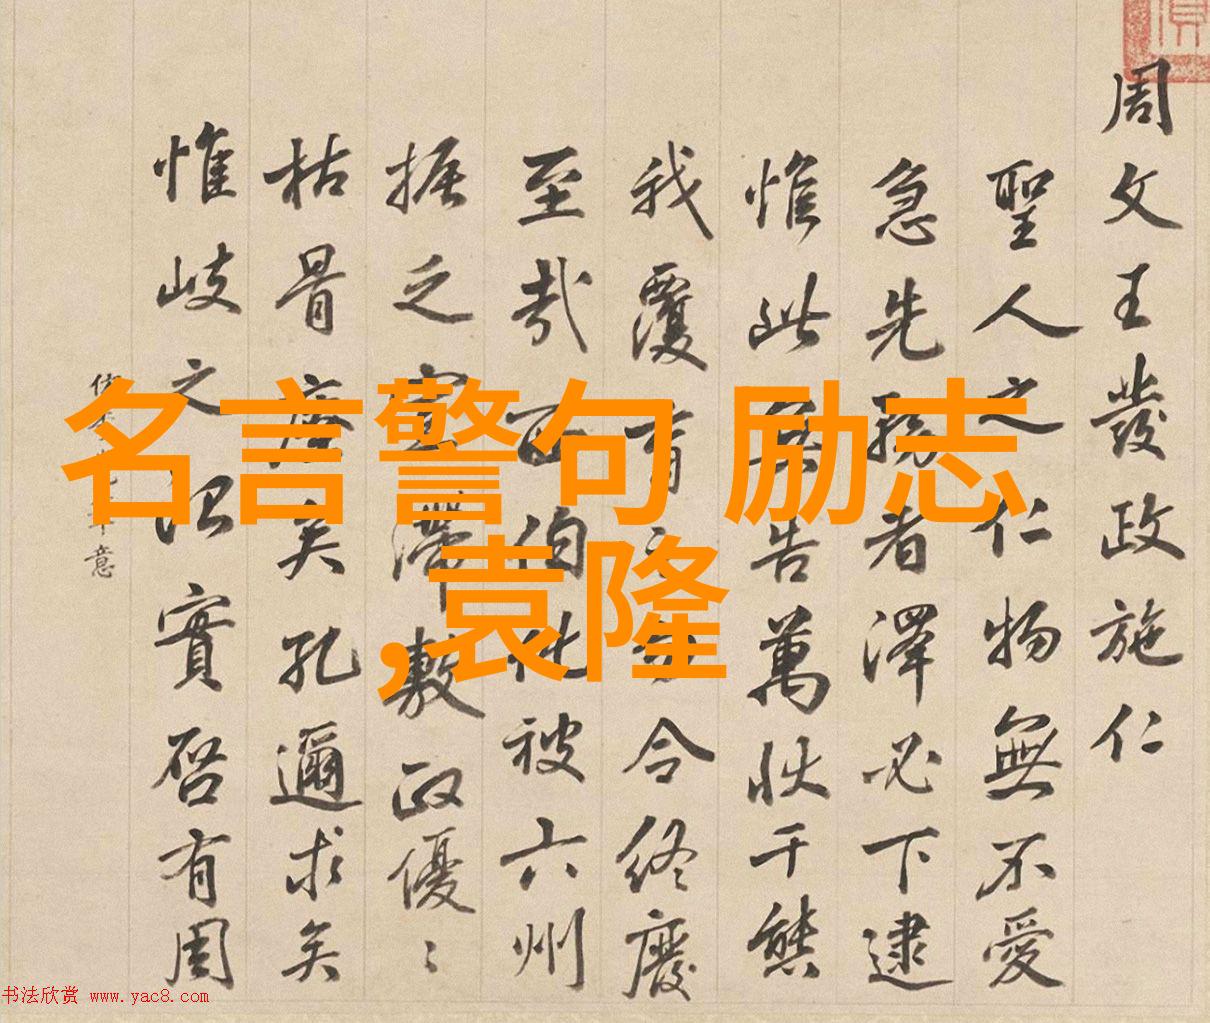 周文王發政施仁
聖人之仁物無不愛
急先孫者澤必下逮
惟此無告萬狀千態
我覆育之
令終慶
至哉西伯化被六州
振之
滯敷政優〻
枯骨
矣孔邇求矣
惟岐之
實啓有周
意
名言警句 励志
,袁隆
书法欣赏 www.yac8.com